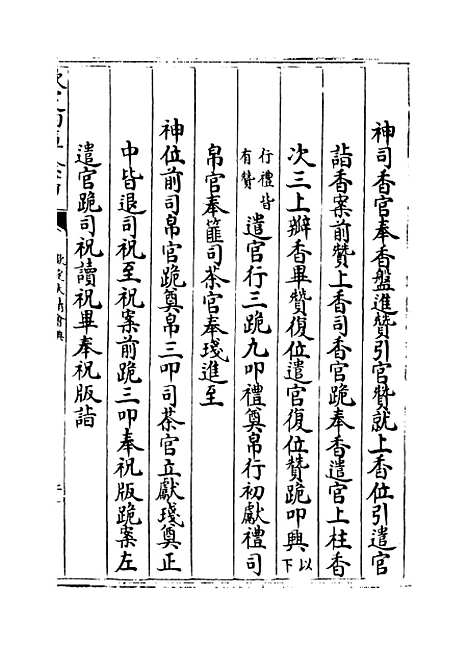 神司香官奉香盤進贊引官贊就上香位引遣官
詣香案前贊上香司香官跪奉香遣官上柱香
次三上瓣香畢贊復位遣官復位贊跪叩興以下
行禮皆有贊遣官行三跪九叩禮奠帛行初獻禮司
帛官奉篚司茶官奉琖進至
神位前司帛官跪奠帛三叩司茶官立獻琖奠正
中皆退司祝至祝案前跪三叩奉祝版跪案左
遣官跪司祝讀祝畢奉祝版詣
欽定大清會典